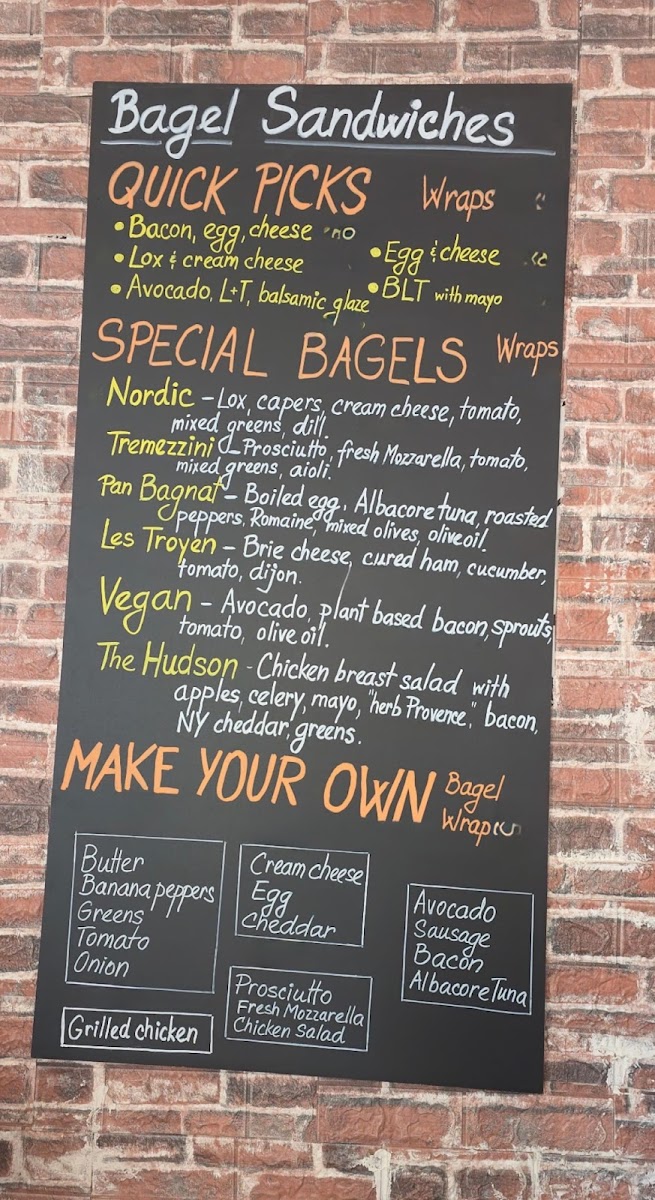 Bagel Sandwiches
QUICK PICKS Wraps
• Bacon, egg, cheese
• Lox & cream cheese
• Avocado, L+T, balsamic glaze
• Egg & cheese
• BLT with mayo
SPECIAL BAGELS Wraps
Nordic - Lox, capers, cream cheese, tomato,
mixed greens, dill.
Tremezzini - Prosciutto, fresh Mozzarella, tomato,
mixed greens, aioli.
Pan Bagnat - Boiled egg, Albacore tuna, roasted
peppers, Romaine, mixed olives, olive oil.
Les Troyen - Brie cheese, cured ham, cucumber,
tomato, dijon.
Vegan - Avocado, plant based bacon, sprouts,
tomato, olive oil.
The Hudson - Chicken breast salad with
apples, celery, mayo, "herb Provence," bacon,
NY cheddar, greens.
MAKE YOUR OWN Bagel
Wrap
Butter
Banana peppers
Greens
Tomato
Onion
Cream cheese
Egg
Cheddar
Avocado
Sausage
Bacon
Albacore Tuna
Prosciutto
Fresh Mozzarella
Chicken Salad
Grilled chicken